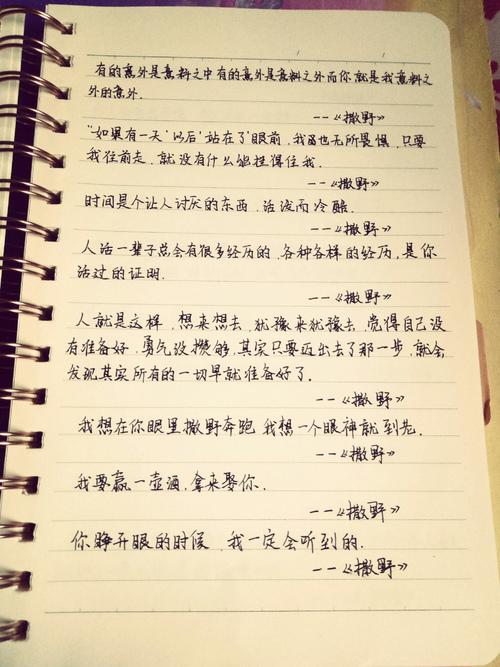 有的意外是意料之中有的意外是意料之外而你就是我意料之
外的意外.
--《撒野》
"如果有一天'以后'站在了眼前,我也无所畏惧,只要
我往前走,就没有什么能挡得住我.
--《撒野》
时间是个让人讨厌的东西,活泼而冷酷.
--《撒野》
人活一辈子总会有很多经历的,各种各样的经历,是你
活过的证明.
--《撒野》
人就是这样,想来想去,犹豫来犹豫去,觉得自己没
有准备好,勇气没攒够,其实只要迈出去了那一步,就会
发现其实所有的一切早就准备好了.
--《撒野》
我想在你眼里撒野奔跑,我想一个眼神就到老.
--《撒野》
我要赢一壶酒,拿来娶你.
--《撒野》
你睁开眼的时候,我一定会听到的.
--《撒野》